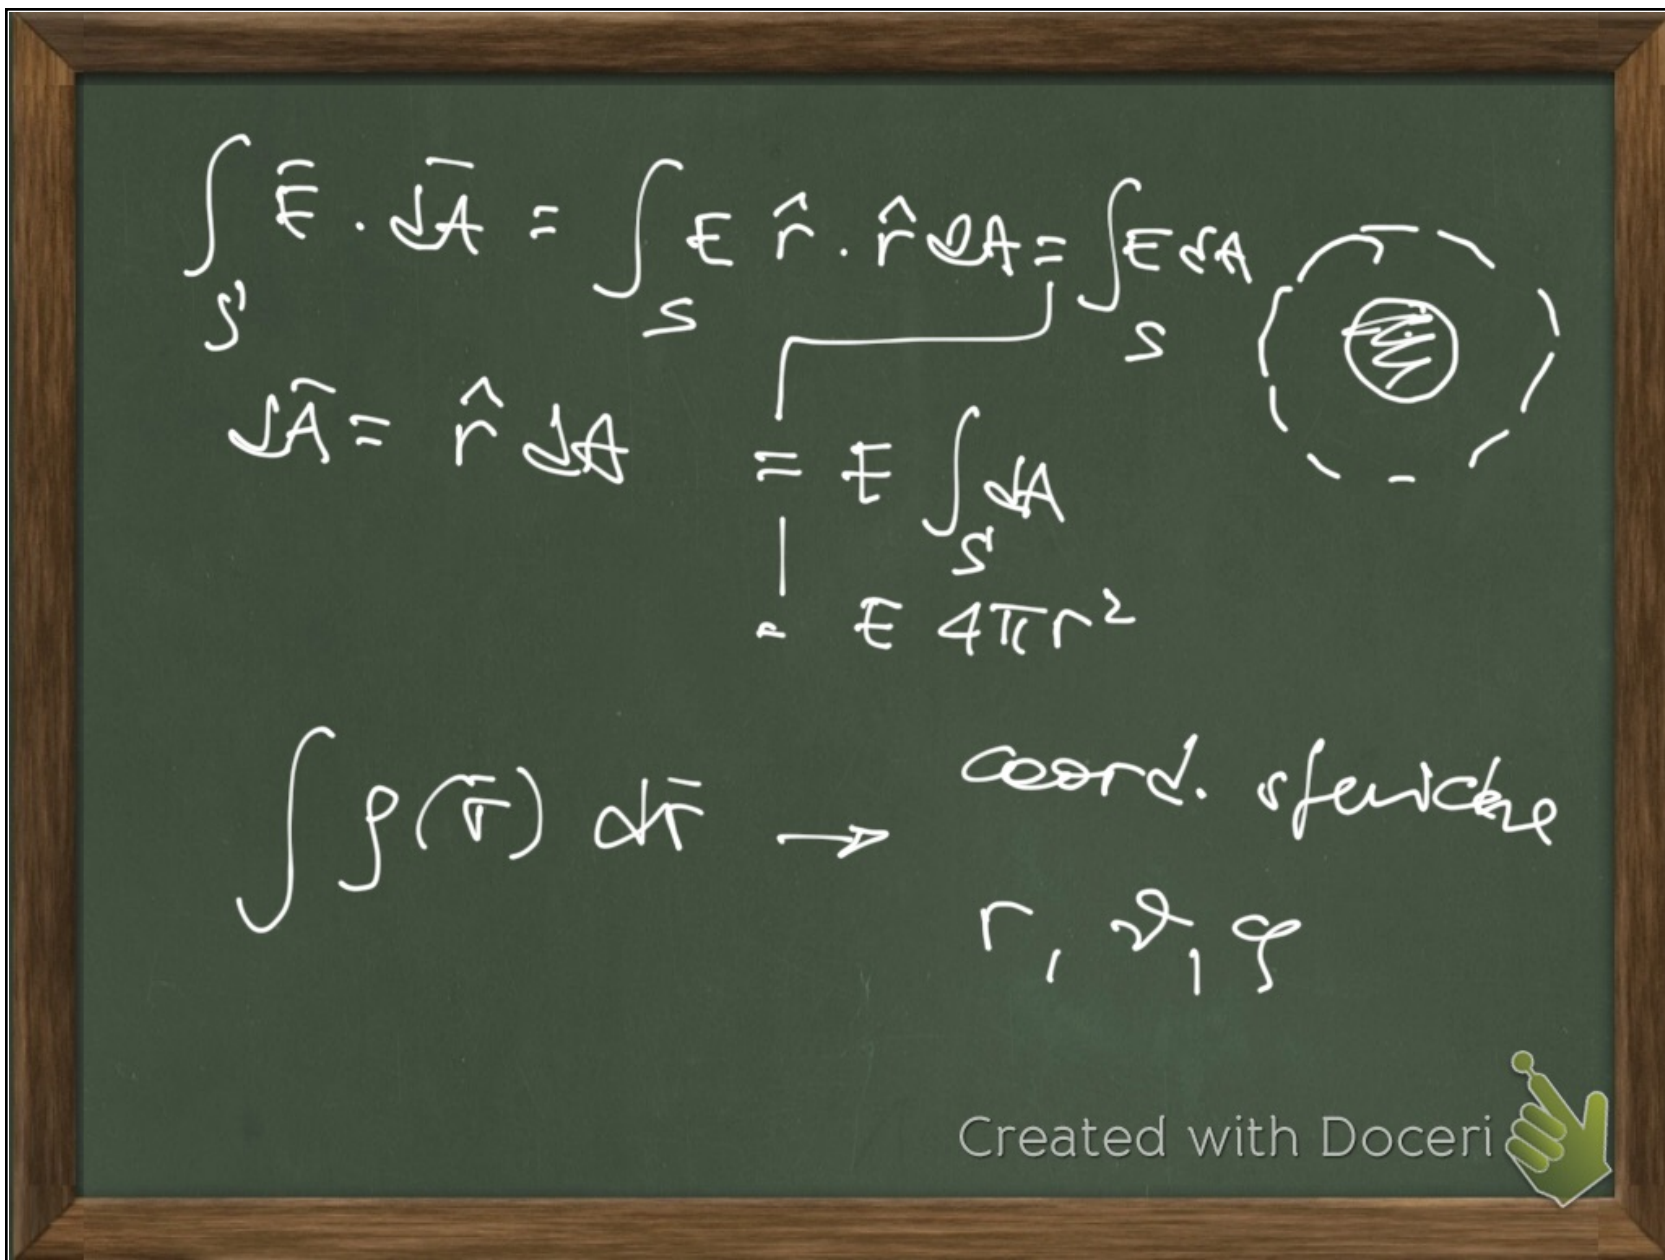 ∫_S Ē · dĀ = ∫_S E r̂ · r̂ dA = ∫_S E dA
dĀ = r̂ dA = E ∫_S dA
= E 4πr²
∫ ρ(r̄) dr̄ → coord. sferiche
r, ϑ, φ
Created with Doceri